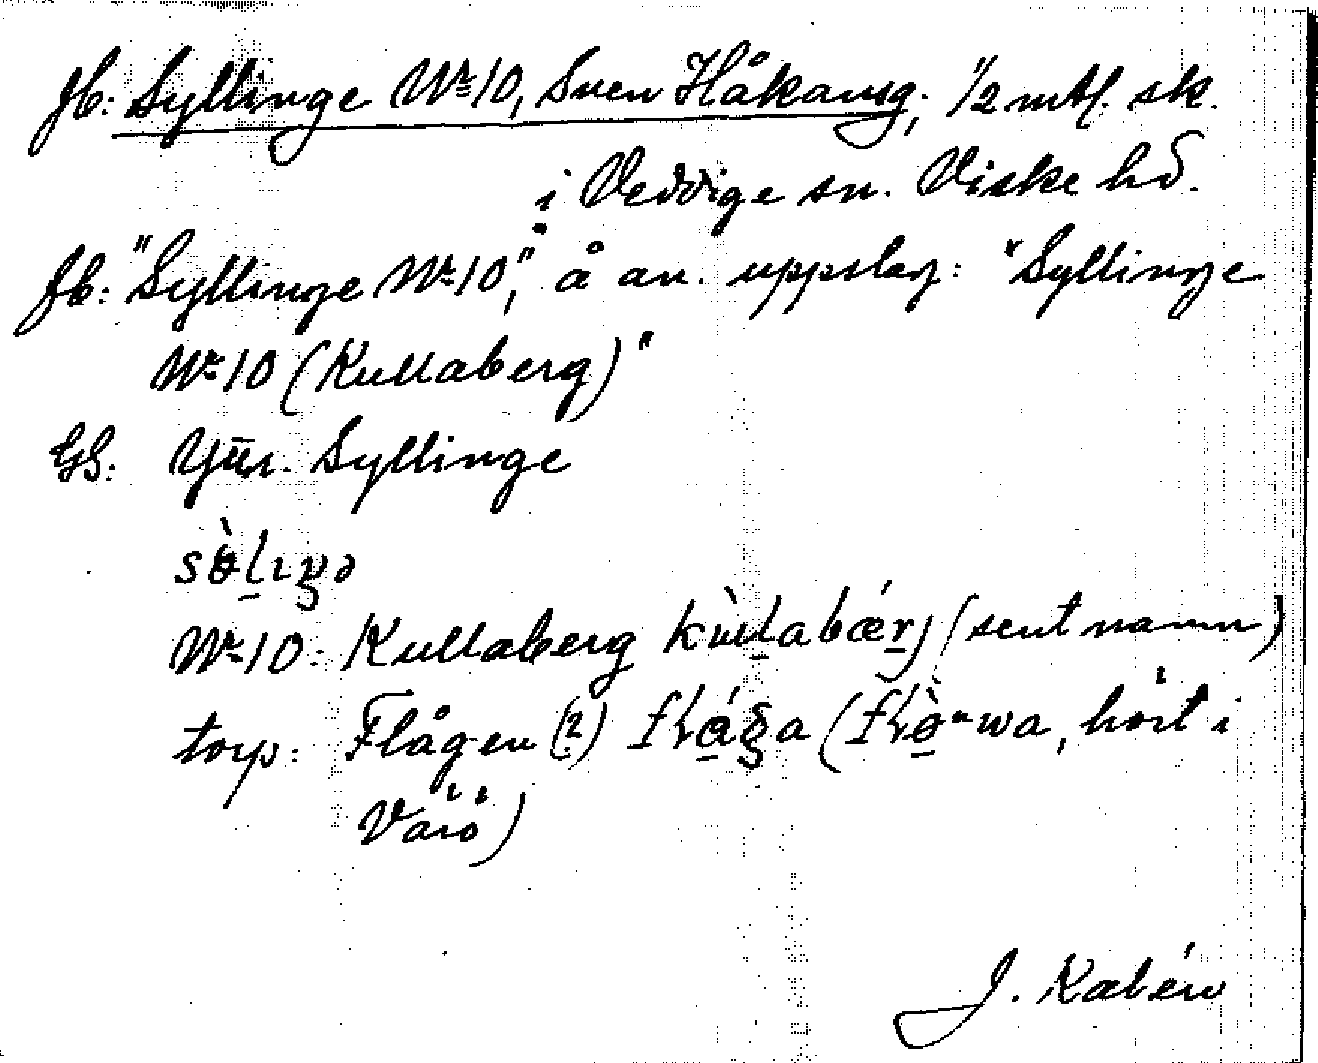 Jb: Syllinge No 10, Sven Håkansg, 1/2 mtl. sk.
i Veddige sn. Viske hd.
Jb: "Syllinge No 10," å an. uppslag: "Syllinge
No 10 (Kullaberg)"
GS: Yttr. Syllinge
No 10: Kullaberg (sent namn)
torp: Flågen (?) hört i
Värö)
J. Kalén